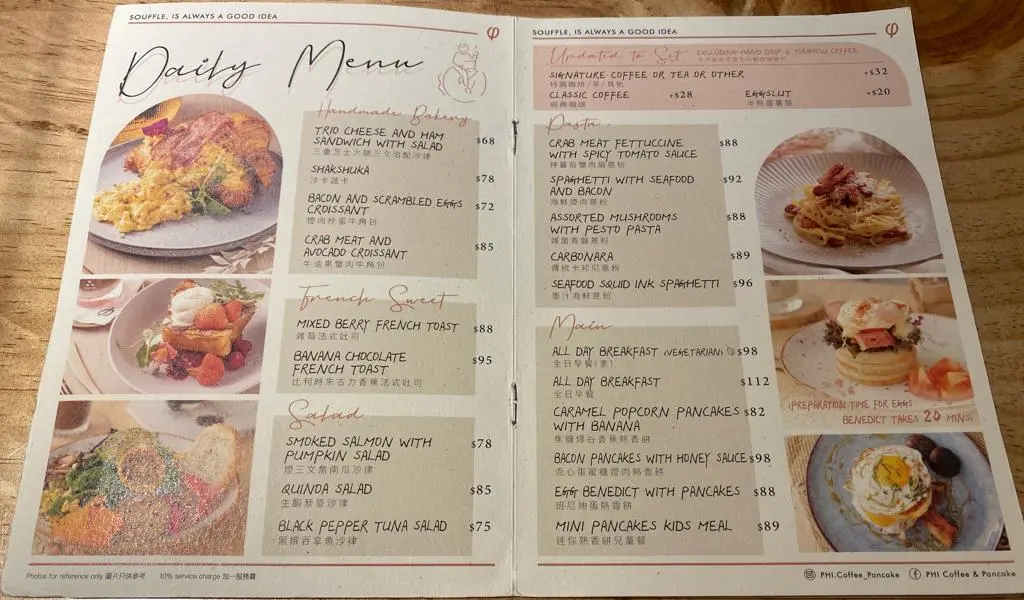 SOUFFLE, IS ALWAYS A GOOD IDEA
φ
Daily Menu
Handmade Bakery
TRIO CHEESE AND HAM
SANDWICH WITH SALAD $68
三重芝士火腿三文治配沙律
SHAKSHUKA $78
沙卡蔬卡
BACON AND SCRAMBLED EGGS
CROISSANT $72
煙肉炒蛋牛角包
CRAB MEAT AND
AVOCADO CROISSANT $85
牛油果蟹肉牛角包
French Sweet
MIXED BERRY FRENCH TOAST $88
雜莓法式吐司
BANANA CHOCOLATE
FRENCH TOAST $95
比利時朱古力香蕉法式吐司
Salad
SMOKED SALMON WITH
PUMPKIN SALAD $78
煙三文魚南瓜沙律
QUINOA SALAD $85
生酮藜麥沙律
BLACK PEPPER TUNA SALAD $75
黑椒吞拿魚沙律
Photos for reference only 圖片只供參考 10% service charge 加一服務費
SOUFFLE, IS ALWAYS A GOOD IDEA
φ
Updated to Set EXCLUDING HAND DRIP & TIRAMISU COFFEE
SIGNATURE COFFEE OR TEA OR OTHER +$32
CLASSIC COFFEE +$28 EGGSLUT +$20
經典咖啡 半熟蛋薯蓉
Pasta
CRAB MEAT FETTUCCINE
WITH SPICY TOMATO SAUCE $88
辣蕃茄蟹肉扁意粉
SPAGHETTI WITH SEAFOOD
AND BACON $92
海鮮煙肉意粉
ASSORTED MUSHROOMS
WITH PESTO PASTA $88
雜菌青醬意粉
CARBONARA $89
傳統卡邦尼意粉
SEAFOOD SQUID INK SPAGHETTI $96
墨汁海鮮意粉
Main
ALL DAY BREAKFAST (VEGETARIAN) $98
全日早餐(素)
ALL DAY BREAKFAST $112
全日早餐
CARAMEL POPCORN PANCAKES $82
WITH BANANA
焦糖爆谷香蕉熱香餅
BACON PANCAKES WITH HONEY SAUCE $98
流心蛋蜜糖煙肉熱香餅
EGG BENEDICT WITH PANCAKES $88
班尼迪蛋熱香餅
MINI PANCAKES KIDS MEAL $89
迷你熱香餅兒童餐
(PREPARATION TIME FOR EGGS
BENEDICT TAKES 20 MINS)
PHI.Coffee_Pancake PHI Coffee & Pancake